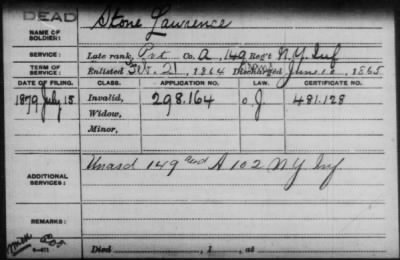 DEAD
NAME OF SOLDIER: Stone Lawrence
SERVICE: Late rank, Pvt Co. A, 149 Reg't N.Y. Inf
TERM OF SERVICE: Enlisted 2, 1864 Discharged June 12, 1865
DATE OF FILING. CLASS. APPLICATION NO. LAW. CERTIFICATE NO.
1879 July 15 Invalid, 298.164 481.128
Widow,
Minor,
ADDITIONAL SERVICES: Unasd 149 and A 102 N.Y. Inf.
REMARKS:
Died , 1 , at